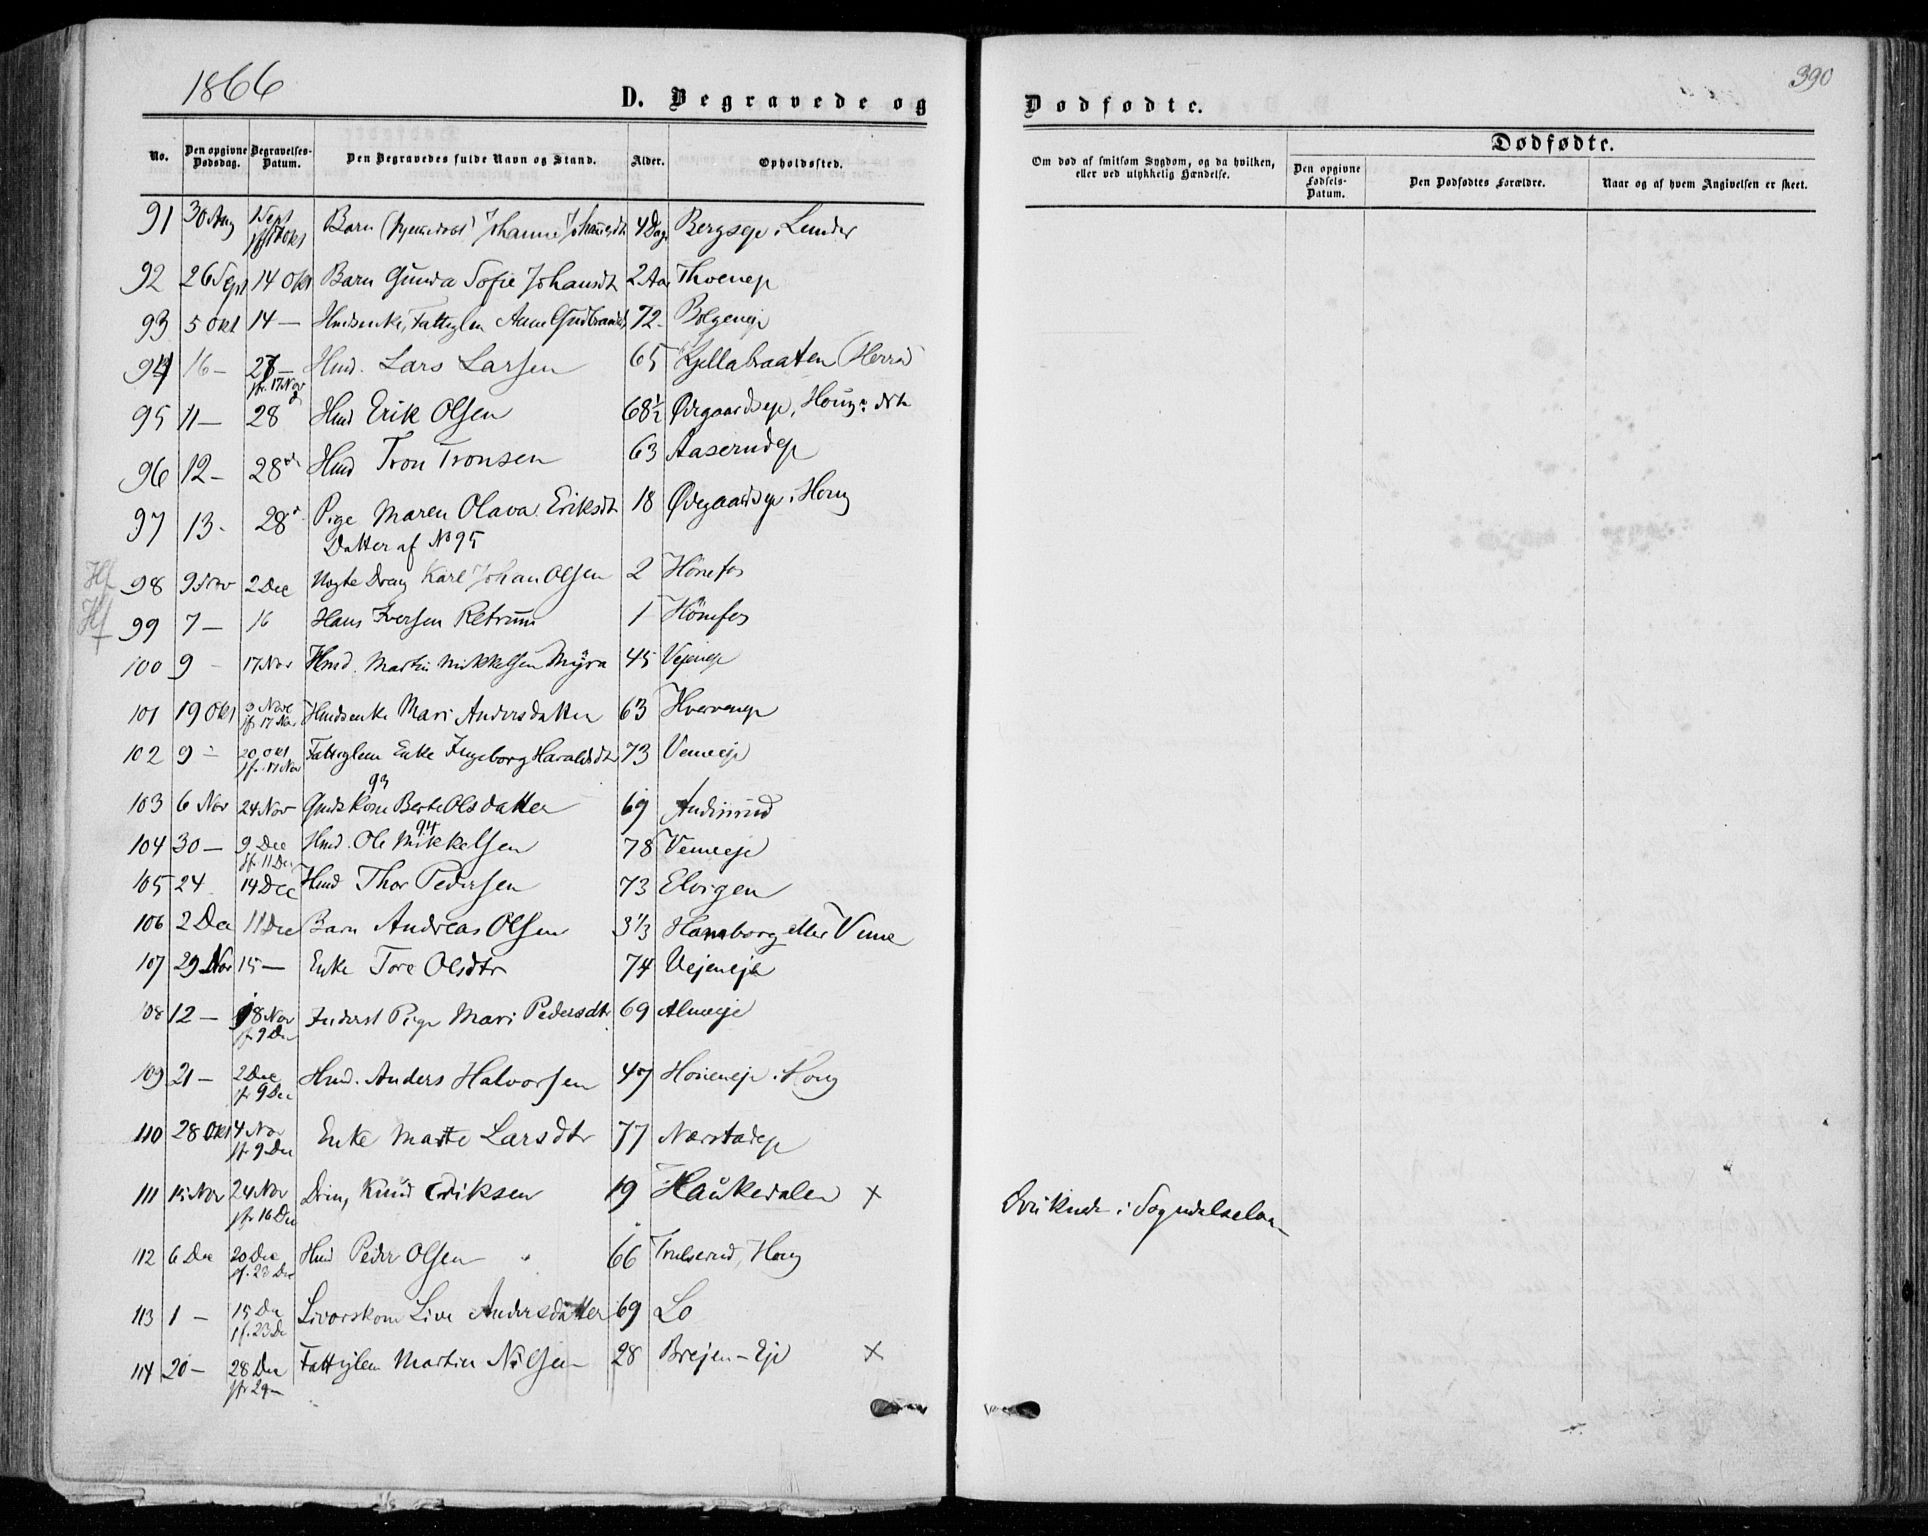 1866
390
D. Begravede og
Dødfødte.
No.
Den opgivne Dødsdag.
Begravelses-Datum.
Den Begravedes fulde Navn og Stand.
Alder.
Opholdssted.
Om død af smitsom Sygdom, og da hvilken, eller ved ulykkelig Hændelse.
Dødfødte.
Den opgivne Fødsels-Datum.
Den Dødfødtes Forældre.
Naar og af hvem Angivelsen er skeet.
91 30 Aug 1 Sept Barn Johanne 4 Dage Bergseje, Lunder
92 26 Sept 14 Okt Barn Gunda Sofie Johansdt 2 Aar Thoeneje
93 5 Okt 14 — Hmdsenke, Fattiglem 72 –
94 16 – 27 – Hmd. Lars Larsen 65
jf. 17 Nov
95 11 — 28 Hmd Erik Olsen 68½ Ødegaardseje, Houg
96 12 – 28 Hmd Tron Tronsen 63 Aaserudeje
97 13 – 28 Pige Maren Olava Eriksdt 18 Ødegaardseje, Houg
Datter af No 95
Hf 98 9 Nov 2 Dec Karl Johan Olsen 2 Hönefos
Hf 99 7 — 16 Hans Iversen Retrum 1 Hönefos
100 9 – 17 Nov Hmd. Martin Mikkelsen Myra 45 Vejeneje
101 19 Okt 3 Nov Hmdsenke Mari Andersdatter 63 Hverveneje
jf 17 Nov
102 9 – 20 Okt Fattiglem Enke Ingeborg Haraldsdt 73 Vemeeje
jf. 17 Nov
93
103 6 Nov 24 Nov Gmdskone Berte Olsdatter 69
94
104 30 — 9 Dec Hmd. Ole Mikkelsen 78 Vemeeje
jf 11 Dec
105 24 14 Dec Hmd Thor Pedersen 73 Elvigen
106 2 Dec 11 Dec Barn Andreas Olsen 3 1/3 Hamborg eller Veme
107 29 Nov 15 — Enke Tore Olsdtr 74 Vejeneje
108 12 — 18 Nov Inderst Pige Mari Pedersdtr 69 Almeeje
jf 9 Dec
109 21 — 2 Dec Hmd. Anders Halvorsen 47 Höneneje, Houg
jf 9 Dec
110 28 Okt 4 Nov Enke Marte Larsdtr 77 Nærstadeje
jf 9 Dec
111 15 Nov 24 Nov Knud Eriksen 19 Haukedalen × Druknede i Sogndalselven
jf 16 Dec
112 6 Dec 20 Dec Hmd Peder Olsen 66 Trulserud, Houg
jf. 23 Dec
113 1 – 15 Dec Livørskone Live Andersdatter 69 Lo
jf. 23 De
114 20 – 28 Dec Fattiglem Martin Nilsen 28 Brejen – Eje ×
jf 29 –